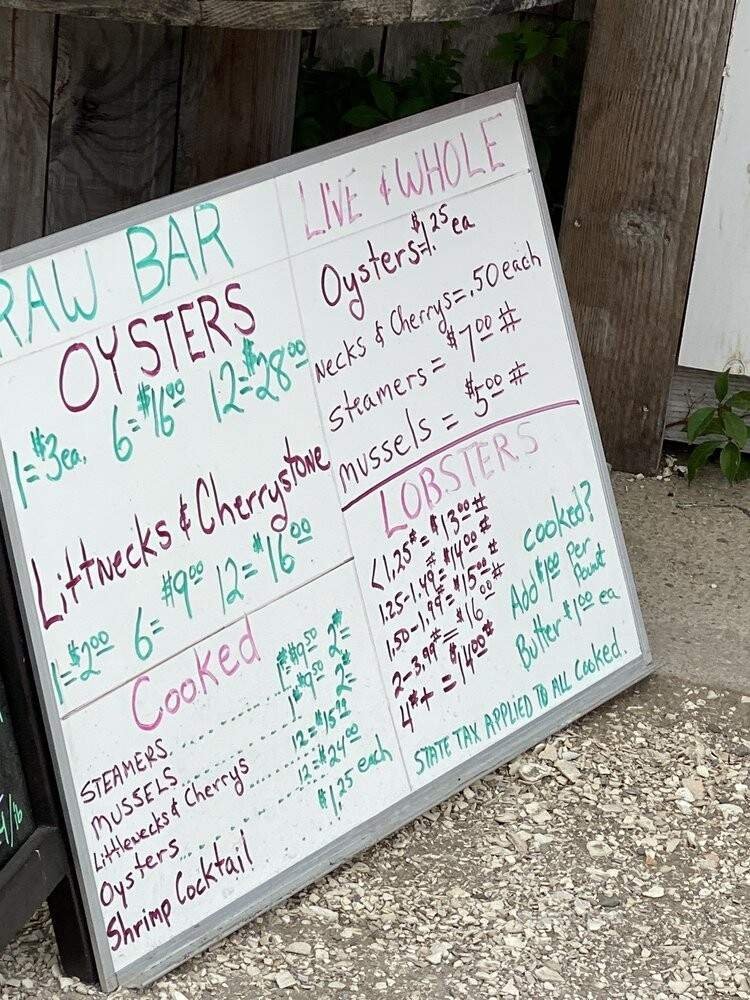 RAW BAR
OYSTERS
1=$3ea. 6=$16.00 12=$28.00
Littnecks & Cherrystone
1=$2.00 6=$9.00 12=$16.00
Cooked
STEAMERS 1#$9.50 2#=
MUSSELS 1#$9.50 2#=
Littlenecks & Cherrys 12=$15.00
Oysters 12=$24.00
Shrimp Cocktail $1.25 each
LIVE & WHOLE
Oysters=$1.25 ea
necks & Cherrys=.50 each
steamers = $7.00 #
mussels = $5.00 #
LOBSTERS
<1.25# = $13.00 #
1.25-1.49# = $14.00 #
1.50-1.99# = $15.00 #
2-3.99# = $16.00 #
4#+ = $14.00 #
cooked?
Add $1.00 Per
Pound
Butter $1.00 ea
STATE TAX APPLIED TO ALL COOKED.
/lb